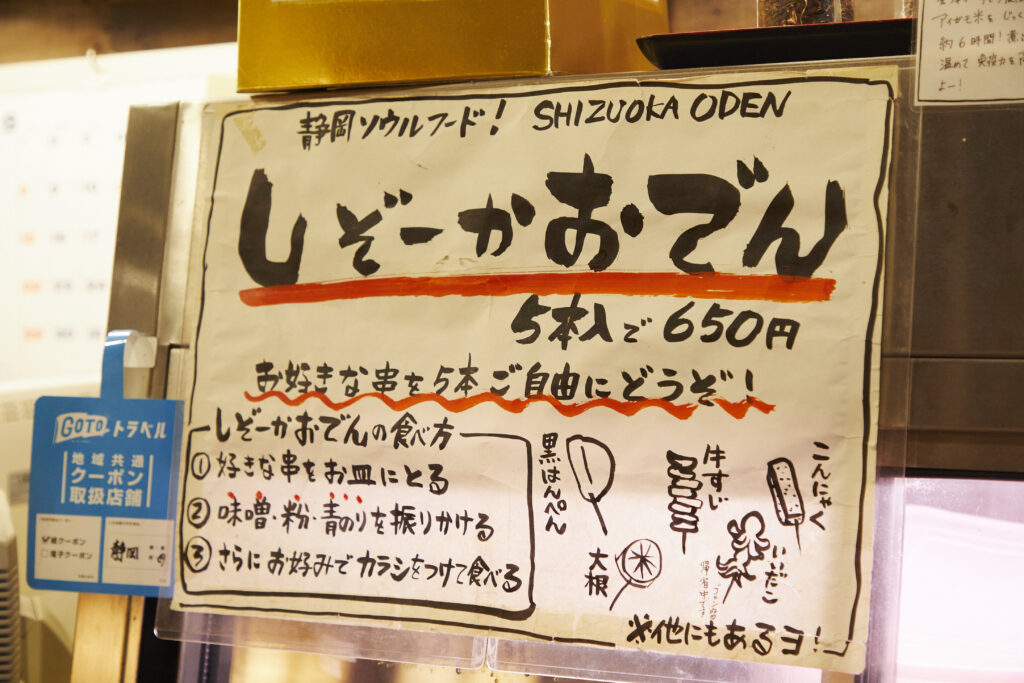 静岡ソウルフード! SHIZUOKA ODEN
しぞーかおでん
5本入で650円
お好きな串を5本ご自由にどうぞ!
しぞーかおでんの食べ方
① 好きな串をお皿にとる
② 味噌・粉・青のりを振りかける
③ さらにお好みでカラシをつけて食べる
黒はんぺん
大根
牛すじ
いいだこ
ゴメンなさい
帰省中です
こんにゃく
※他にもあるヨ!
GOTOトラベル
地域共通
クーポン
取扱店舗
紙クーポン
電子クーポン
静岡
アイガモ米をじっく
約6時間!煮
温めて 免疫力を
よー!